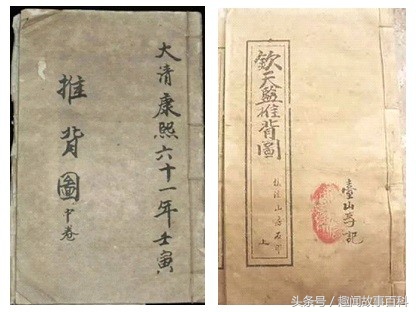 大清康熙六十一年壬寅
推背圖中卷
欽天監推背圖
上
臺山馬記
头条号 / 趣闻故事百科